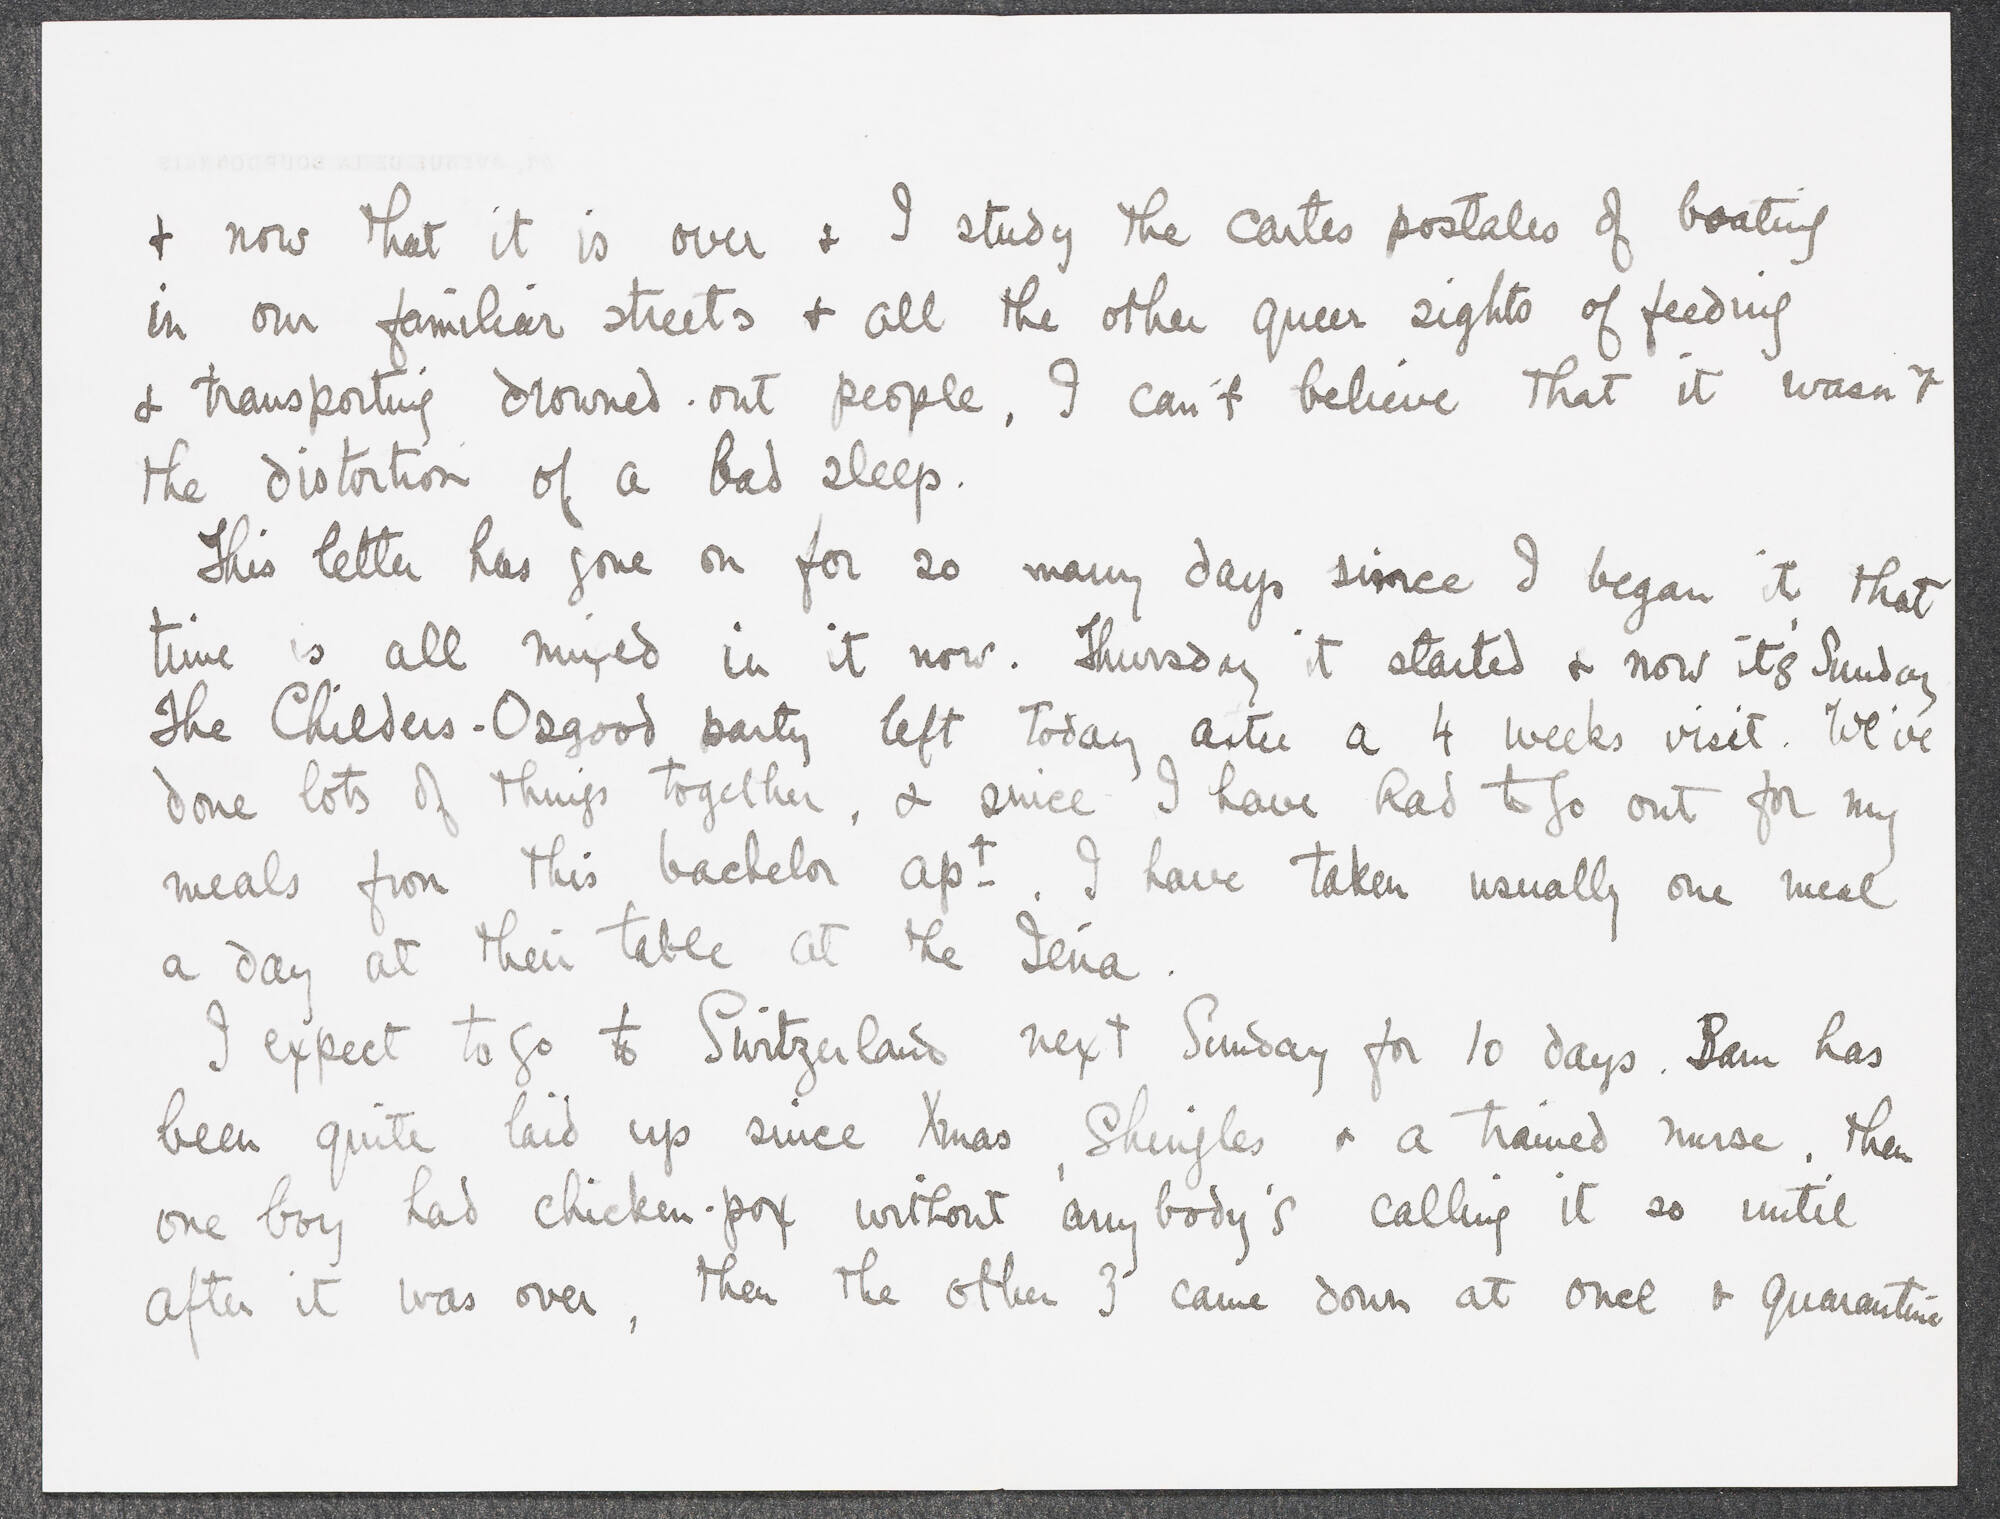 & now that it is over & I study the cartes postales of boating
in our familiar streets & all the other queer sights of feeding
& transporting drowned-out people, I can't believe that it wasn't
the distortion of a bad sleep.
This letter has gone on for so many days since I began it, that
time is all mixed in it now. Thursday it started & now it's Sunday
The Childers-Osgood party left today after a 4 weeks visit. We've
done lots of things together, & since I have had to go out for my
meals from this bachelor apt. I have taken usually one meal
a day at their table at the Iéna.
I expect to go to Switzerland next Sunday for 10 days. Bam has
been quite laid up since Xmas, Shingles & a trained nurse, then
one boy had chicken-pox without anybody's calling it so until
after it was over, then the other 3 came down at once & quarantine